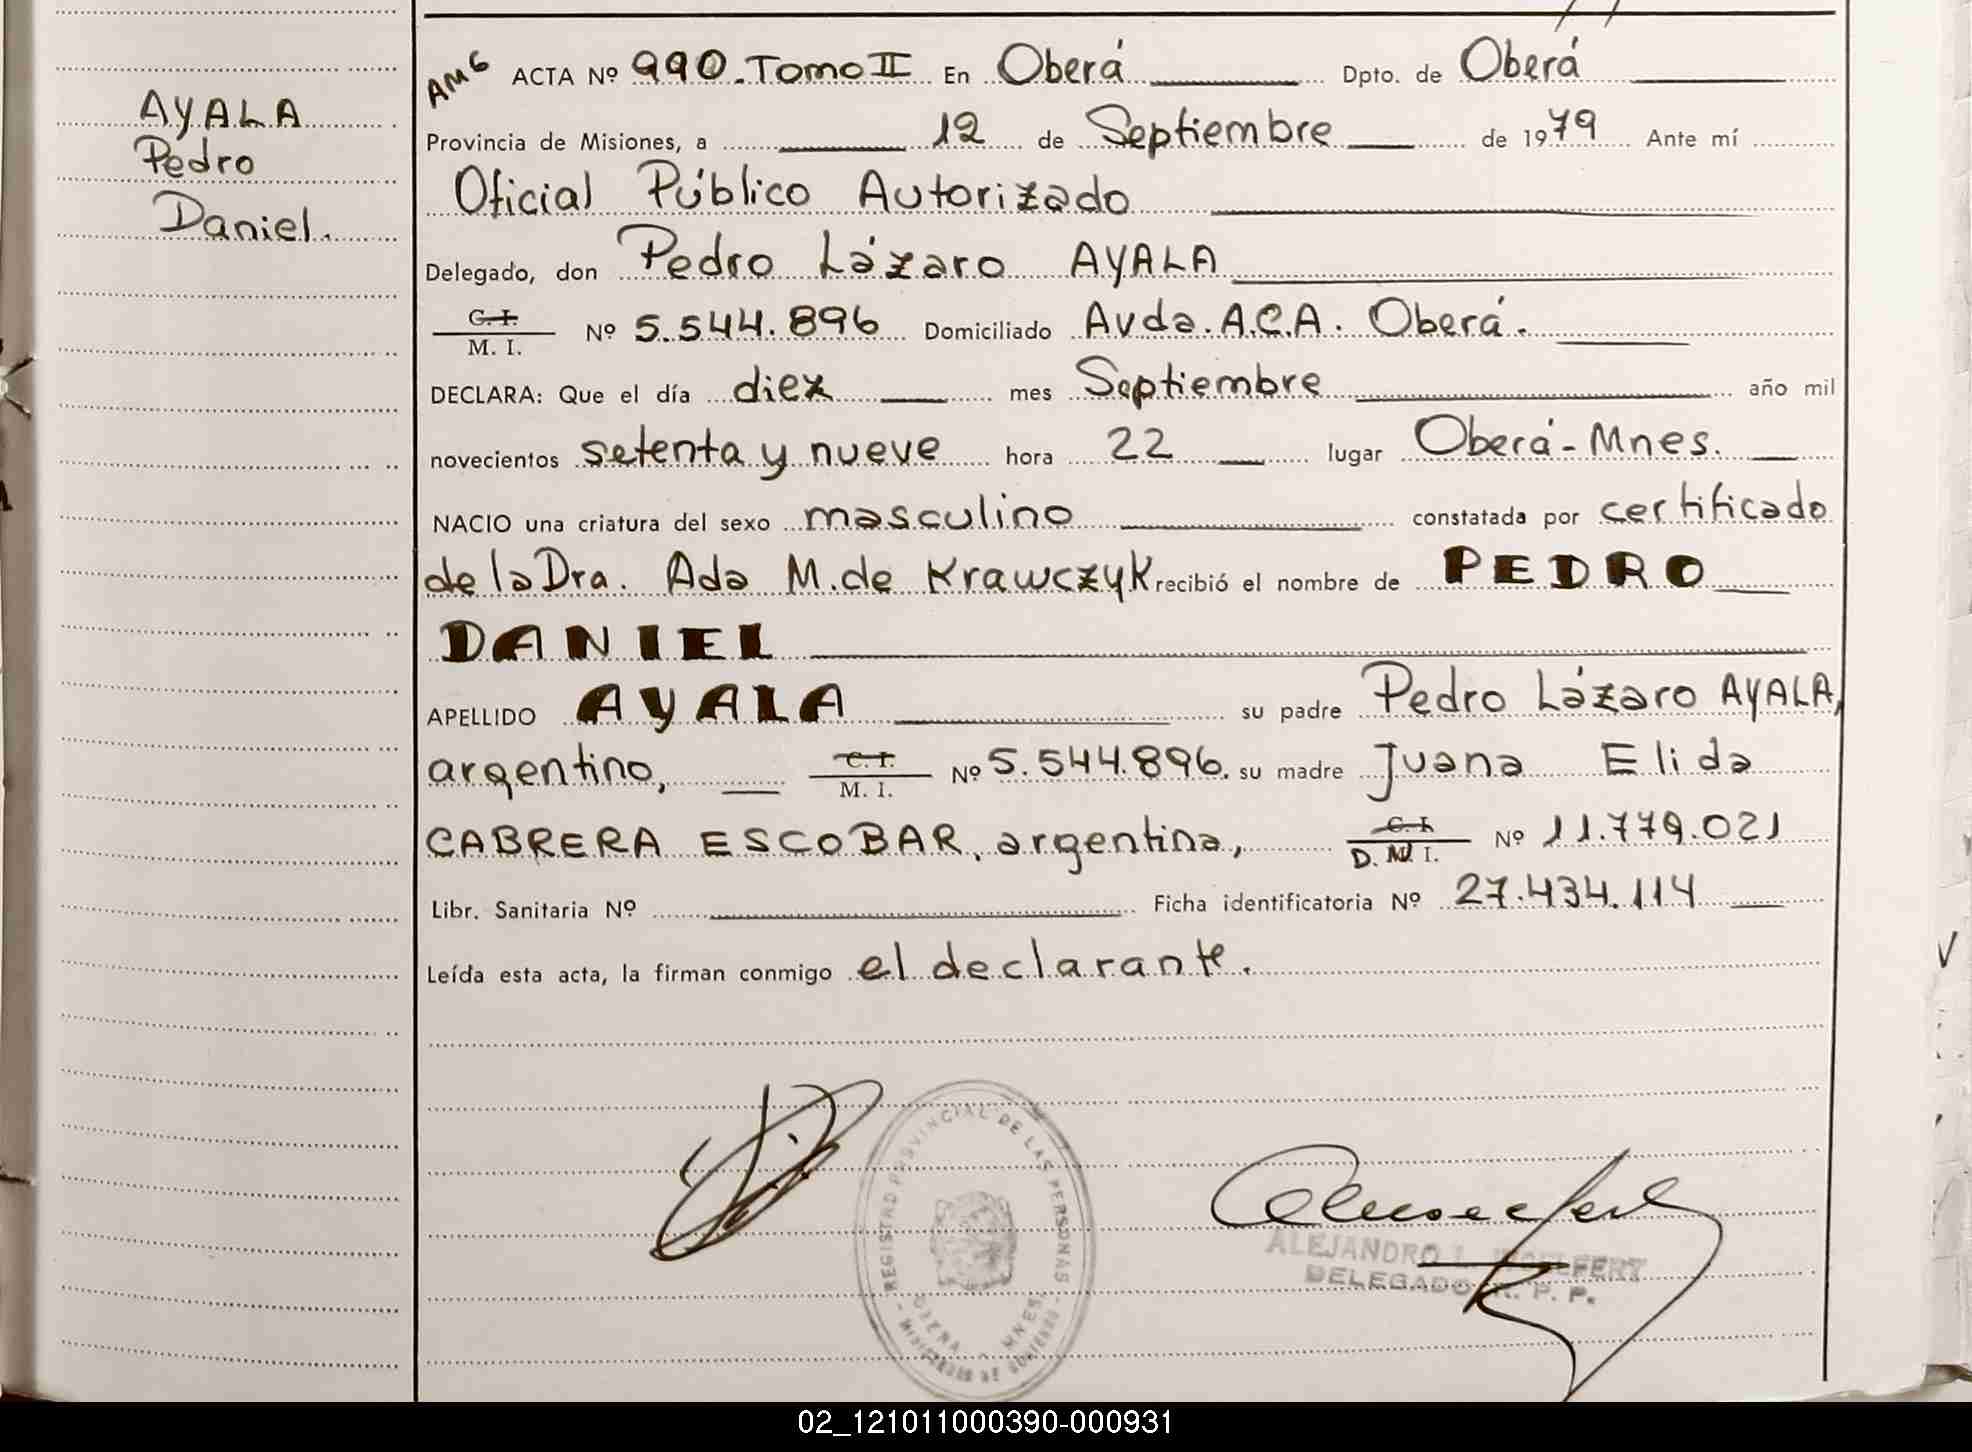 AMG ACTA Nº 990. Tomo II En Oberá Dpto. de Oberá
AYALA
Pedro
Daniel.
Provincia de Misiones, a 12 de Septiembre de 1979 Ante mí
Oficial Público Autorizado
Delegado, don Pedro Lázaro AYALA
C. I.
M. I. Nº 5.544.896 Domiciliado Avda. A.C.A. Oberá.
DECLARA: Que el día diez mes Septiembre año mil
novecientos setenta y nueve hora 22 lugar Oberá - Mnes.
NACIO una criatura del sexo masculino constatada por certificado
de la Dra. Ada M. de Krawczyk recibió el nombre de PEDRO
DANIEL
APELLIDO AYALA su padre Pedro Lázaro AYALA,
argentino, C. I.
M. I. Nº 5.544.896. su madre Juana Elida
CABRERA ESCOBAR, argentina, C. I.
D. N. I. Nº 11.779.021
Libr. Sanitaria Nº Ficha identificatoria Nº 27.434.114
Leída esta acta, la firman conmigo el declarante.
REGISTRO PROVINCIAL DE LAS PERSONAS
MNES.
ALEJANDRO
DELEGADO R. P. P.
02_121011000390-000931